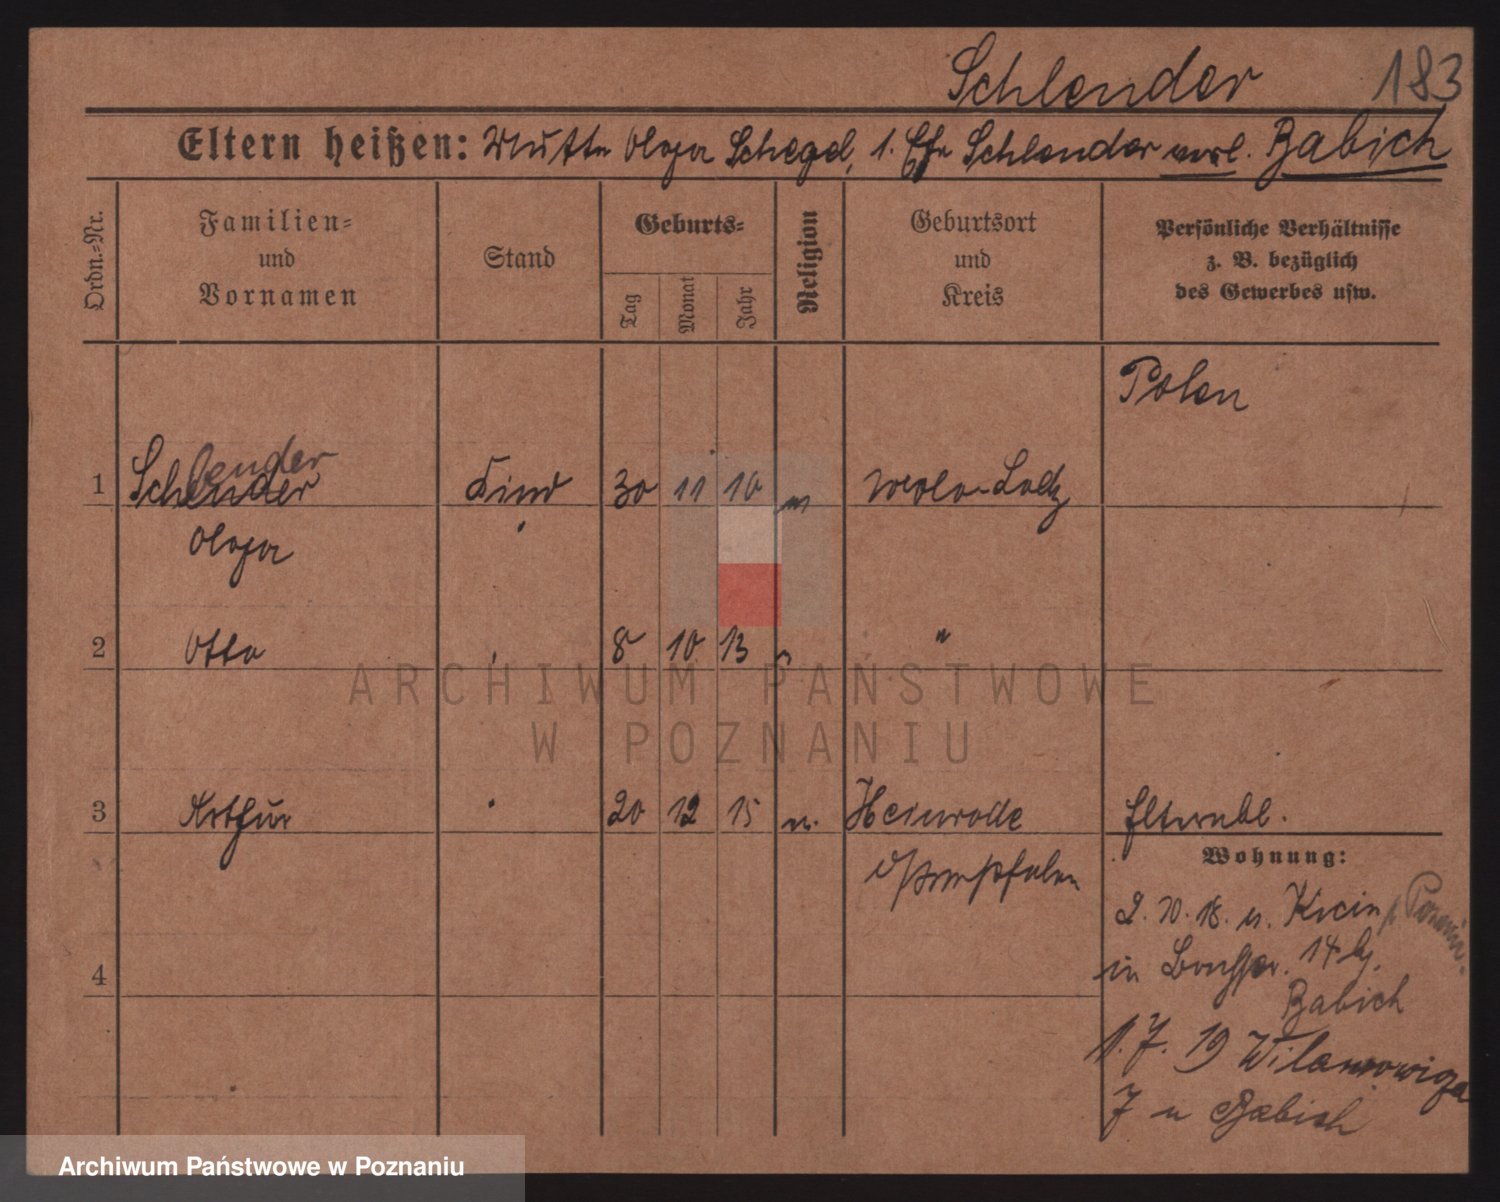 Schlender 183
Eltern heißen: Mutter Olga Schegel, 1. Ehe Schlender verl. Babich
Ordn.-Nr.
Familien-
und
Vornamen
Stand
Geburts-
Tag
Monat
Jahr
Religion
Geburtsort
und
Kreis
Persönliche Verhältnisse
z. B. bezüglich
des Gewerbes usw.
Polen
Schlender
1 Schlender Kind 30 11 10 Wola-Lodz
Olga
2 Otto 8 10 13 "
3 Arthur 20 12 15
Westpfalen
Wohnung:
2. 10. 18. n.
in 14 b.
Babich
1. 7. 19
7 n Babich
4
ARCHIWUM PAŃSTWOWE
W POZNANIU
Archiwum Państwowe w Poznaniu